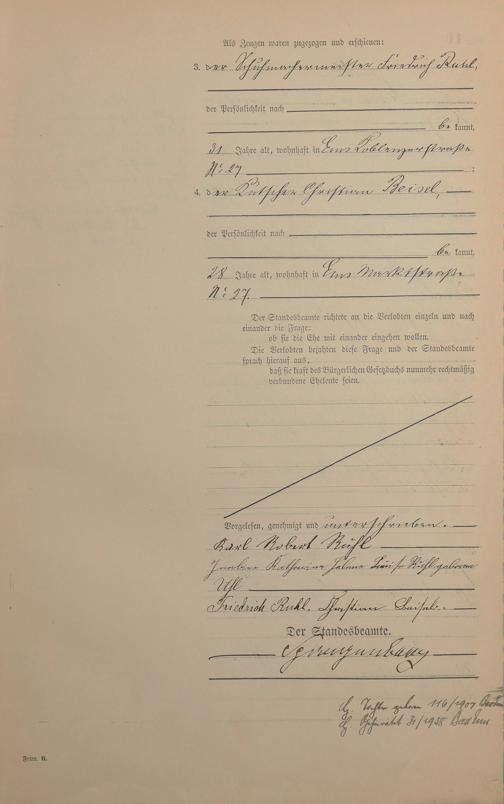 Als Zeugen waren zugezogen und erschienen:
3. der Schuhmachermeister Friedrich Ruhl,
der Persönlichkeit nach
be kannt,
31 Jahre alt, wohnhaft in Ems Koblenzerstraße
No 27 ;
4. der Kutscher Christian Beisel,
der Persönlichkeit nach
be kannt,
28 Jahre alt, wohnhaft in Ems Marktstraße
No 27.
Der Standesbeamte richtete an die Verlobten einzeln und nach
einander die Frage:
ob sie die Ehe mit einander eingehen wollen.
Die Verlobten bejahten diese Frage und der Standesbeamte
sprach hierauf aus,
daß sie kraft des Bürgerlichen Gesetzbuchs nunmehr rechtmäßig
verbundene Eheleute seien.
Vorgelesen, genehmigt und unterschrieben.
Karl Robert Rühl
Katharina Luise Rühl geborene
Uhl
Friedrich Ruhl. Christian Beisel.
Der Standesbeamte.
Spangenberg
Tochter geboren 116/1907
31/1938
Form. B.